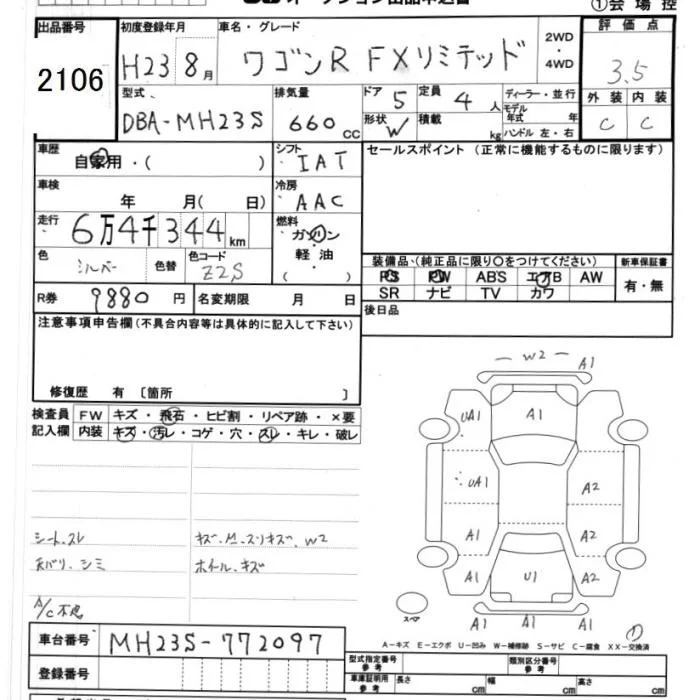 ①会場控
出品番号 初度登録年月 車名・グレード 2WD・4WD 評価点
2106 H23 8月 ワゴンR FXリミテッド 3.5
型式 排気量 ドア 5 定員 4人 ディーラー・並行 外装 内装
DBA-MH23S 660cc 形状 W 積載 kg モデル年式 年 ハンドル 左・右 C C
車歴 自家用・( ) シフト IAT セールスポイント (正常に機能するものに限ります)
車検 年 月( 日) 冷房 AAC
走行 6万4千344km 燃料 ガソリン 軽油 ( )
色 シルバー 色替 色コード Z2S
装備品 (純正品に限り○をつけてください) 新車保証書
PS PW ABS エアB AW 有・無
SR ナビ TV カワ
R券 9880円 名変期限 月 日 後日品
注意事項申告欄(不具合内容等は具体的に記入して下さい)
修復歴 有 〔箇所 〕
検査員 FW キズ・飛石・ヒビ割・リペア跡・×要
記入欄 内装 キズ・汚レ・コゲ・穴・スレ・キレ・破レ
W2 A1
UA1 A1
UA1 A2
A1 A2
A1 U1 A2
A1 A1
シート、スレ
天バリ、シミ
ホイール、キズ
A/C不良
スペア
①
A-キズ E-エクボ U-凹み W-補修跡 S-サビ C-腐食 XX-交換済
車台番号 MH23S-772097
登録番号
型式指定番号 参考 類別区分番号 参考
車庫証明用 参考 長さ cm 幅 cm 高さ cm